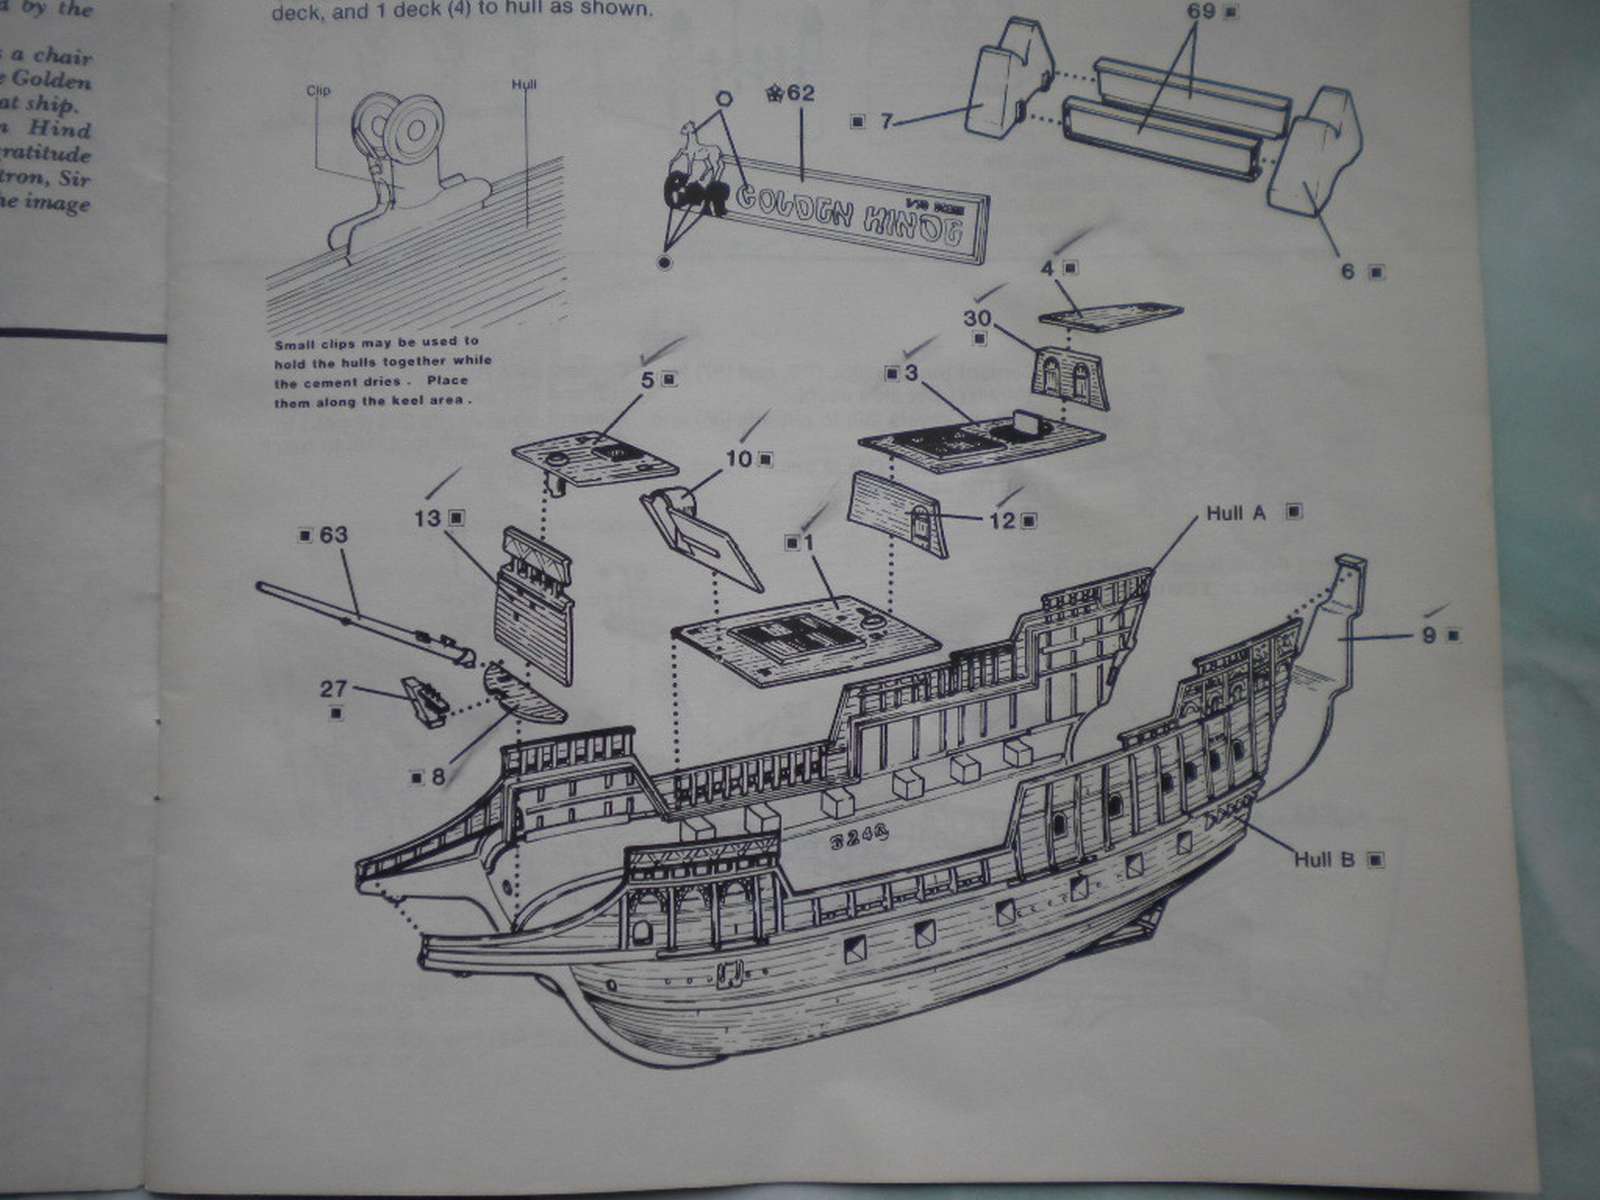 d by the
s a chair
e Golden
at ship.
n Hind
gratitude
tron, Sir
he image
deck, and 1 deck (4) to hull as shown.
Clip
Hull
Small clips may be used to
hold the hulls together while
the cement dries. Place
them along the keel area.
69
7
62
GOLDEN HINDE
6
4
30
5
3
10
13
12
Hull A
63
1
9
27
8
Hull B